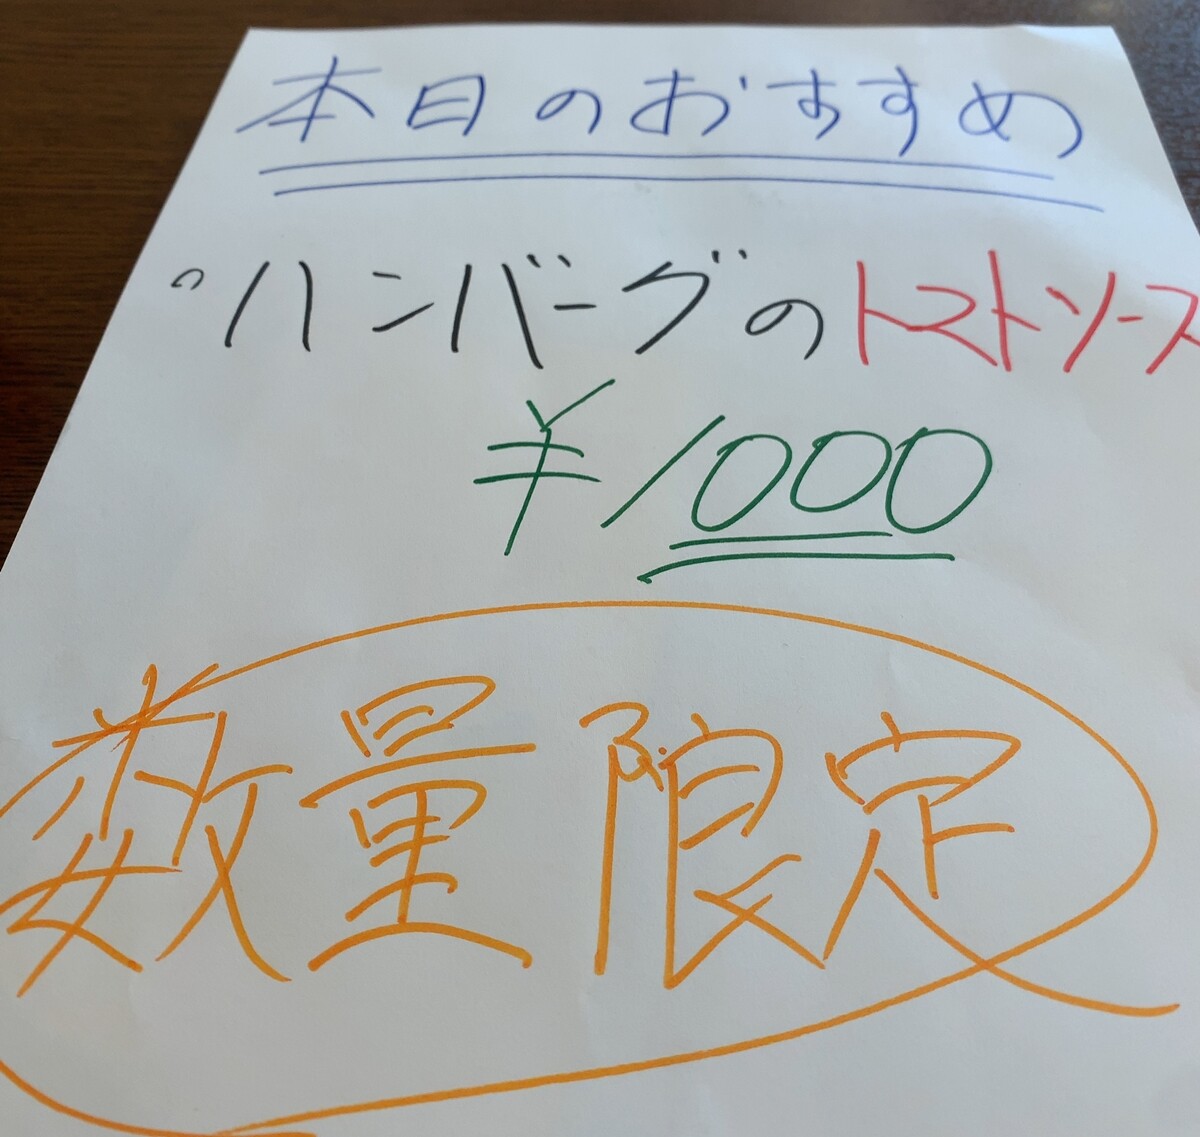 本日のおすすめ
°ハンバーグの トマトソース
¥1000
数量限定